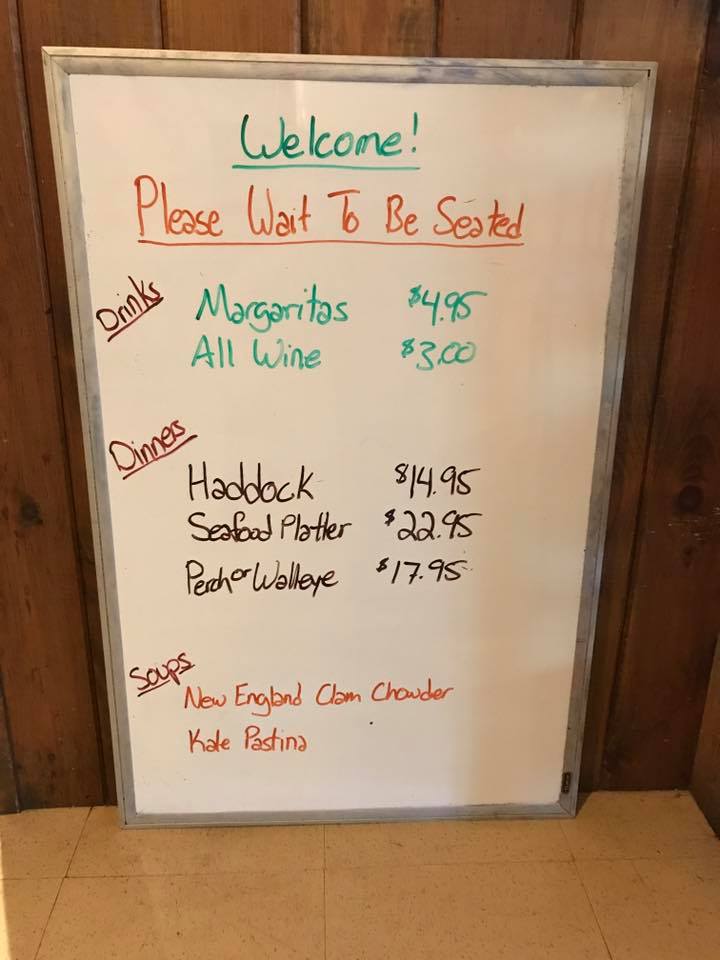 Welcome!
Please Wait To Be Seated
Drinks
Margaritas $4.95
All Wine $3.00
Dinners
Haddock $14.95
Seafood Platter $22.95
Perch or Walleye $17.95
Soups
New England Clam Chowder
Kale Pastina